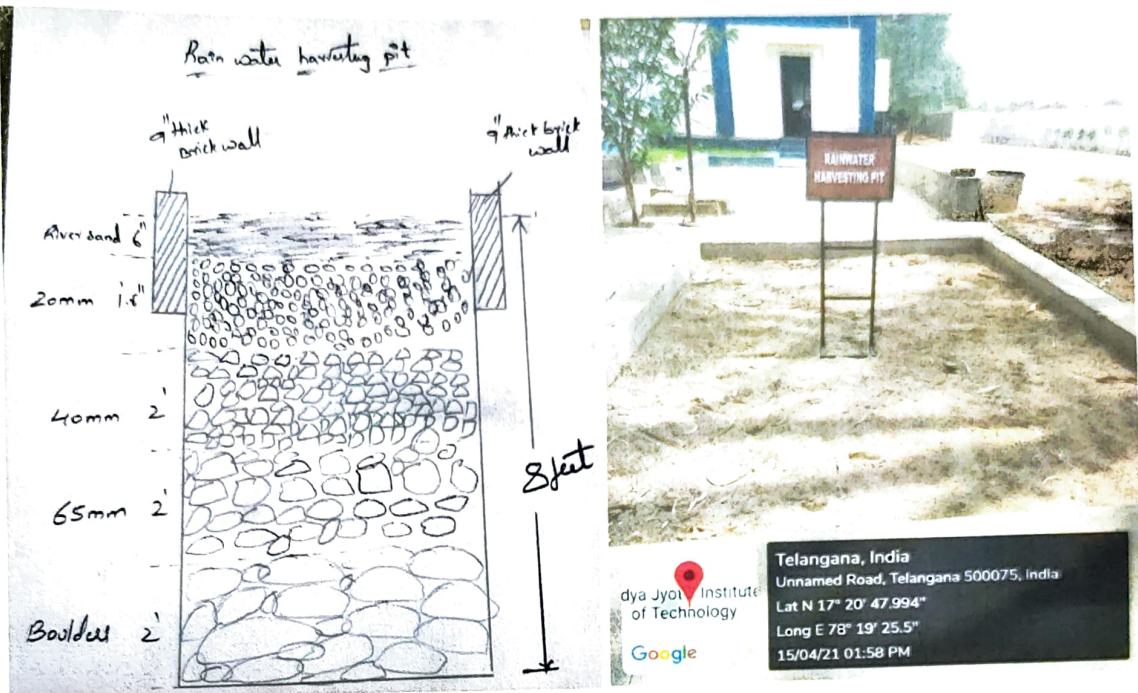 Rain water harvesting pit
9" thick
Brick wall
9" thick brick
wall
River sand 6"
20mm 1.6"
40mm 2'
65mm 2'
Boulders 2'
8 feet
RAINWATER
HARVESTING PIT
dya Jyoti Institute
of Technology
Google
Telangana, India
Unnamed Road, Telangana 500075, India
Lat N 17° 20' 47.994"
Long E 78° 19' 25.5"
15/04/21 01:58 PM